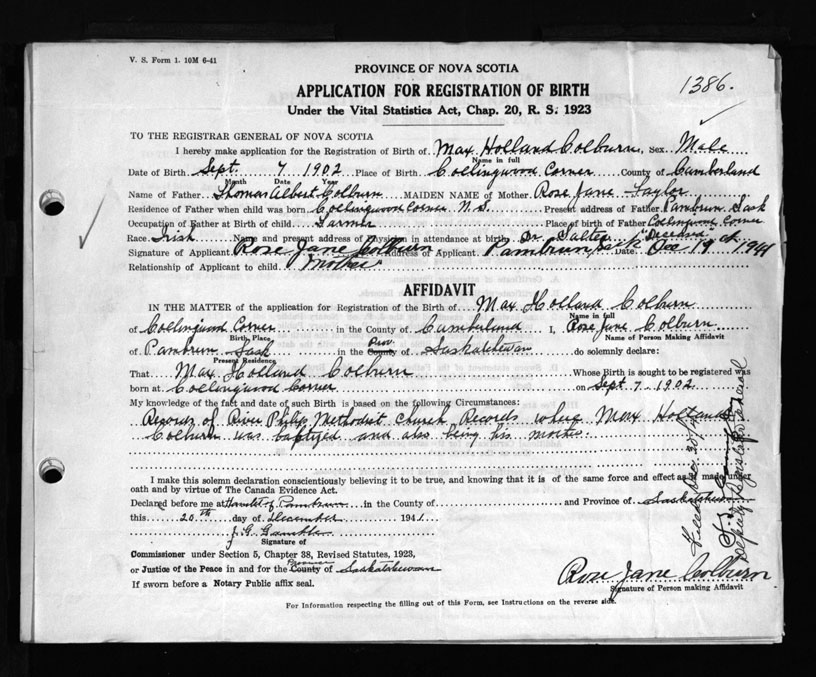 V. S. Form 1. 10M 6-41
PROVINCE OF NOVA SCOTIA
1386.
APPLICATION FOR REGISTRATION OF BIRTH
Under the Vital Statistics Act, Chap. 20, R. S. 1923
TO THE REGISTRAR GENERAL OF NOVA SCOTIA
I hereby make application for the Registration of Birth of Max Holland Colburn, Sex Male
Name in full
Date of Birth Sept. 7 1902 Place of Birth Collingwood Corner County of Cumberland
Month Date Year
Name of Father Thomas Albert Colburn MAIDEN NAME of Mother Rose Jane Taylor
Residence of Father when child was born Collingwood Corner N.S. Present address of Father Pambrun Sask
"Deceased"
Occupation of Father at Birth Farmer Place of birth of Father Collingwood Corner
Race Irish Name and present address of Physician in attendance at birth Dr. Salter
Signature of Applicant Rose Jane Colburn Address of Applicant Pambrun, Sask Date Dec 19th 1941
Relationship of Applicant to child "Mother"
AFFIDAVIT
IN THE MATTER of the application for Registration of the Birth of Max Holland Colburn
Name in full
of Collingwood Corner in the County of Cumberland I, Rose Jane Colburn
Birth Place Name of Person Making Affidavit
of Pambrun Sask in the County Prov of Saskatchewan do solemnly declare:
Present Residence
That Max Holland Colburn Whose Birth is sought to be registered was
born at Collingwood Corner on Sept 7. 1902
My knowledge of the fact and date of such Birth is based on the following Circumstances:
Records of River Philip Methodist Church Records where Max Holland
Colburn was baptized and also being his mother.
I make this solemn declaration conscientiously believing it to be true, and knowing that it is of the same force and effect as if made under
oath and by virtue of The Canada Evidence Act.
Declared before me at Hamlet of Pambrun in the County of and Province of Saskatchewan
this 20th day of December 1941
J. G. Gamble
Signature of
Commissioner under Section 5, Chapter 38, Revised Statutes, 1923,
or Justice of the Peace in and for the County Province of Saskatchewan
If sworn before a Notary Public affix seal.
Rose Jane Colburn
Signature of Person making Affidavit
For Information respecting the filling out of this Form, see Instructions on the reverse side.
Deputy Registrar General